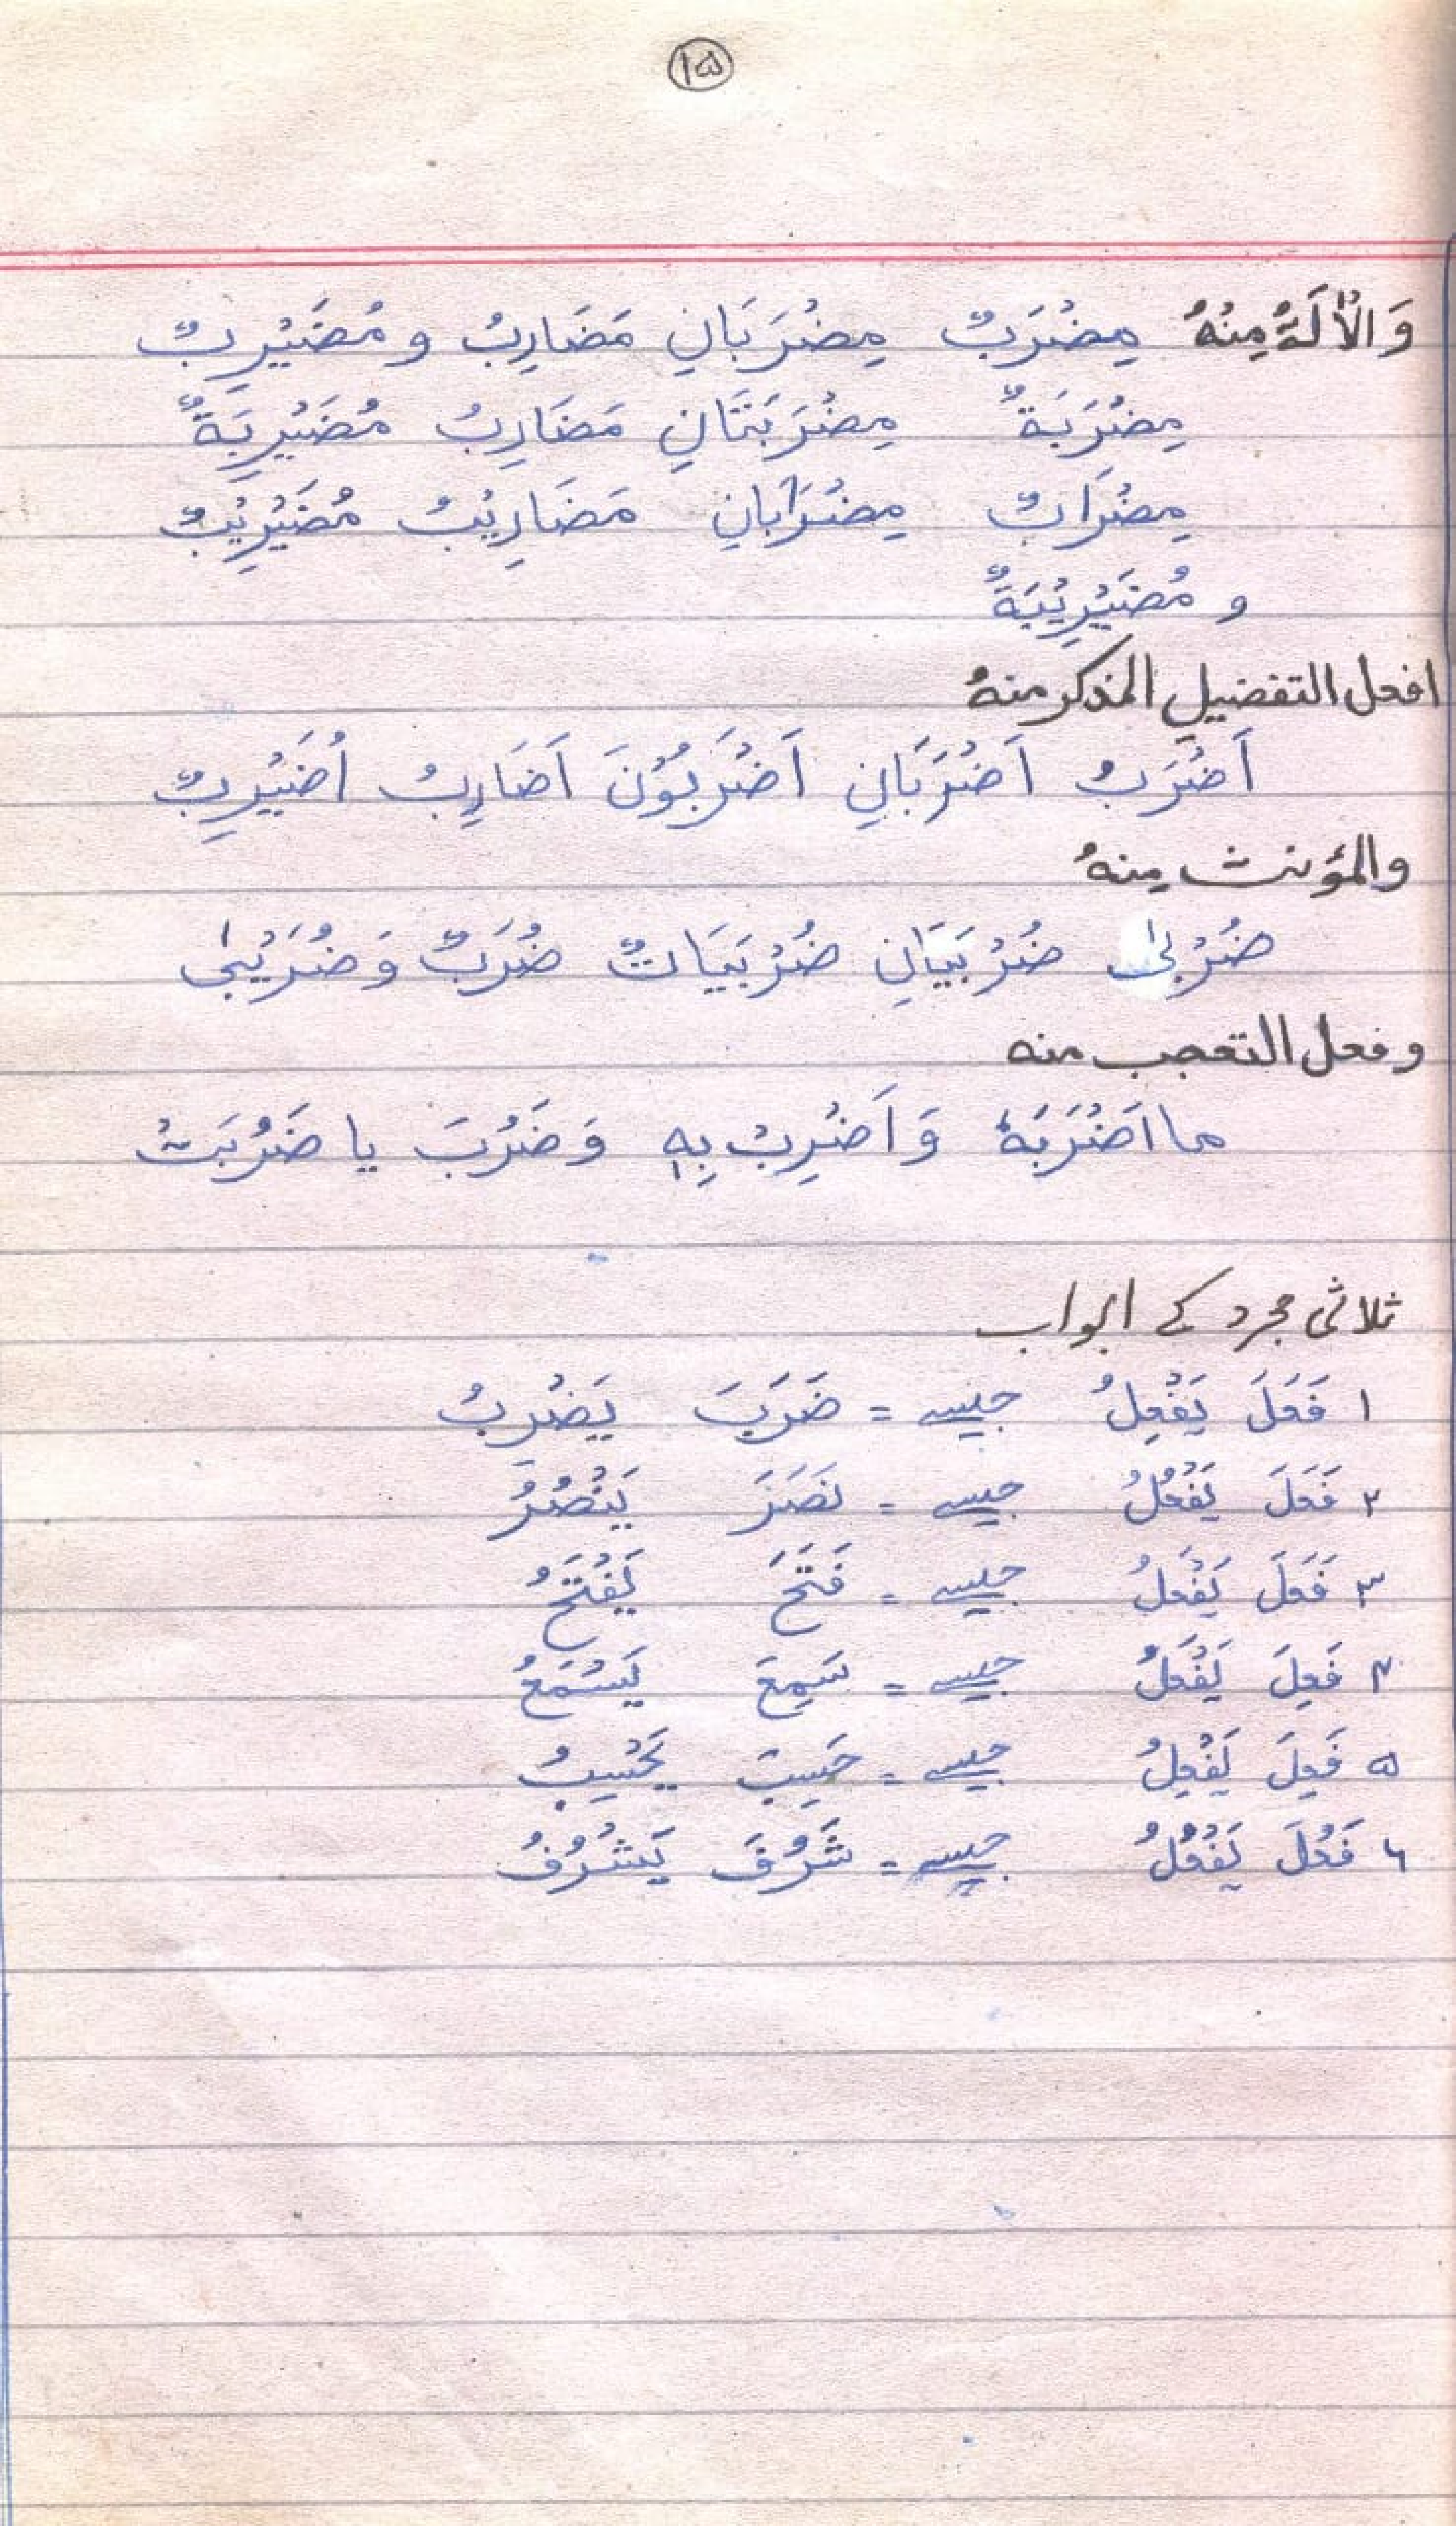 ۱۵
وَالْاٰلَةُ مِنْهُ مِضْرَبٌ مِضْرَبَانِ مَضَارِبُ و مُضَيْرِبٌ
مِضْرَبَةٌ مِضْرَبَتَانِ مَضَارِبُ مُضَيْرِبَةٌ
مِضْرَابٌ مِضْرَابَانِ مَضَارِيْبُ مُضَيْرِيْبٌ
و مُضَيْرِيْبَةٌ
افعل التفضيل المذكر منهُ
اَضْرَبُ اَضْرَبَانِ اَضْرَبُوْنَ اَضَارِبُ اُضَيْرِبٌ
والمؤنث مِنهُ
ضُرْبٰى ضُرْبَيَانِ ضُرْبَيَاتٌ ضُرَبٌ وَ ضُرَيْبٰى
و فعل التعجب منه
ما اَضْرَبَهٗ وَ اَضْرِبْ بِهٖ وَ ضَرُبَ يا ضَرُبَتْ
ثلاثی مجرد کے ابواب
۱ فَعَلَ يَفْعِلُ جیسے = ضَرَبَ يَضْرِبُ
۲ فَعَلَ يَفْعُلُ جیسے = نَصَرَ يَنْصُرُ
۳ فَعَلَ يَفْعَلُ جیسے = فَتَحَ يَفْتَحُ
۴ فَعِلَ يَفْعَلُ جیسے = سَمِعَ يَسْمَعُ
۵ فَعِلَ يَفْعِلُ جیسے = حَسِبَ يَحْسِبُ
۶ فَعُلَ يَفْعُلُ جیسے = شَرُفَ يَشْرُفُ